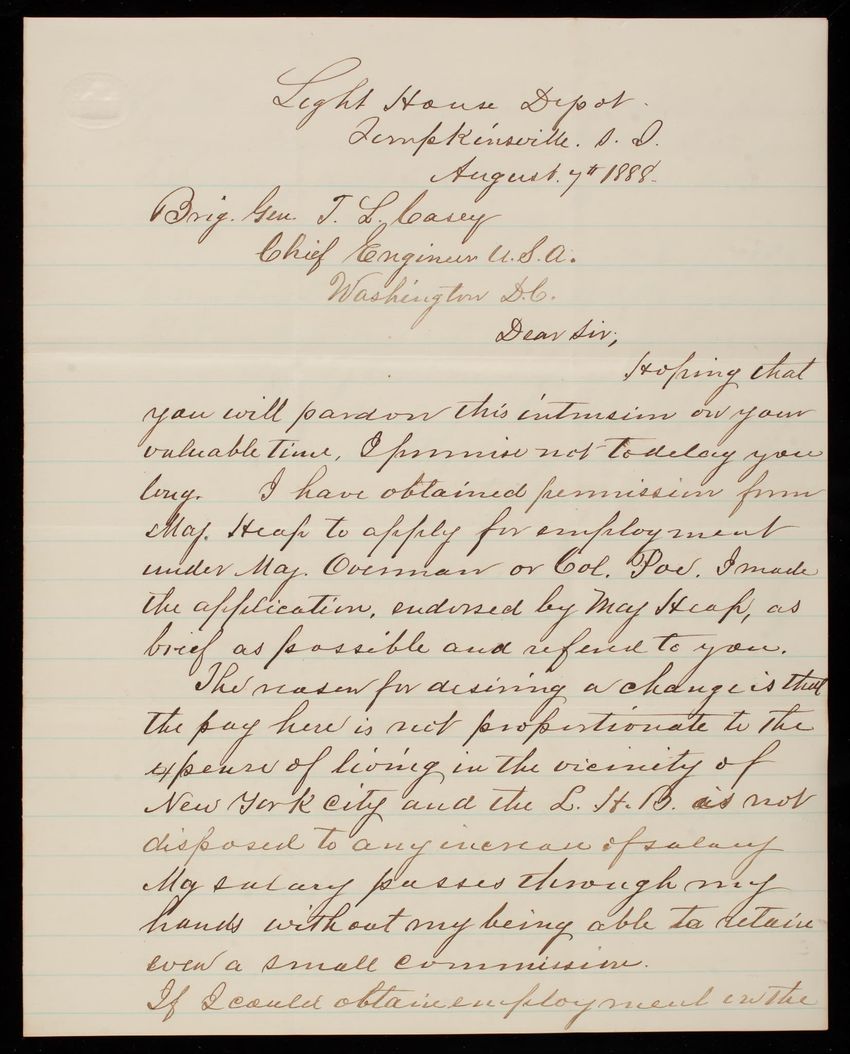 Light House Depot.
Tompkinsville. S. I.
August. 7th 1888.
Brig. Gen. T. L. Casey
Chief Engineer U.S.A.
Washington D.C.
Dear Sir;
Hoping that
you will pardon this intrusion on your
valuable time, I promise not to delay you
long. I have obtained permission from
Maj. Heap to apply for employment
under Maj. Overman or Col. Poe. I made
the application, endorsed by Maj Heap, as
brief as possible and referred to you.
The reason for desiring a change is that
the pay here is not proportionate to the
expense of living in the vicinity of
New York city and the L. H. B. is not
disposed to any increase of salary
My salary passes through my
hands without my being able to retain
even a small commission.
If I could obtain employment in the